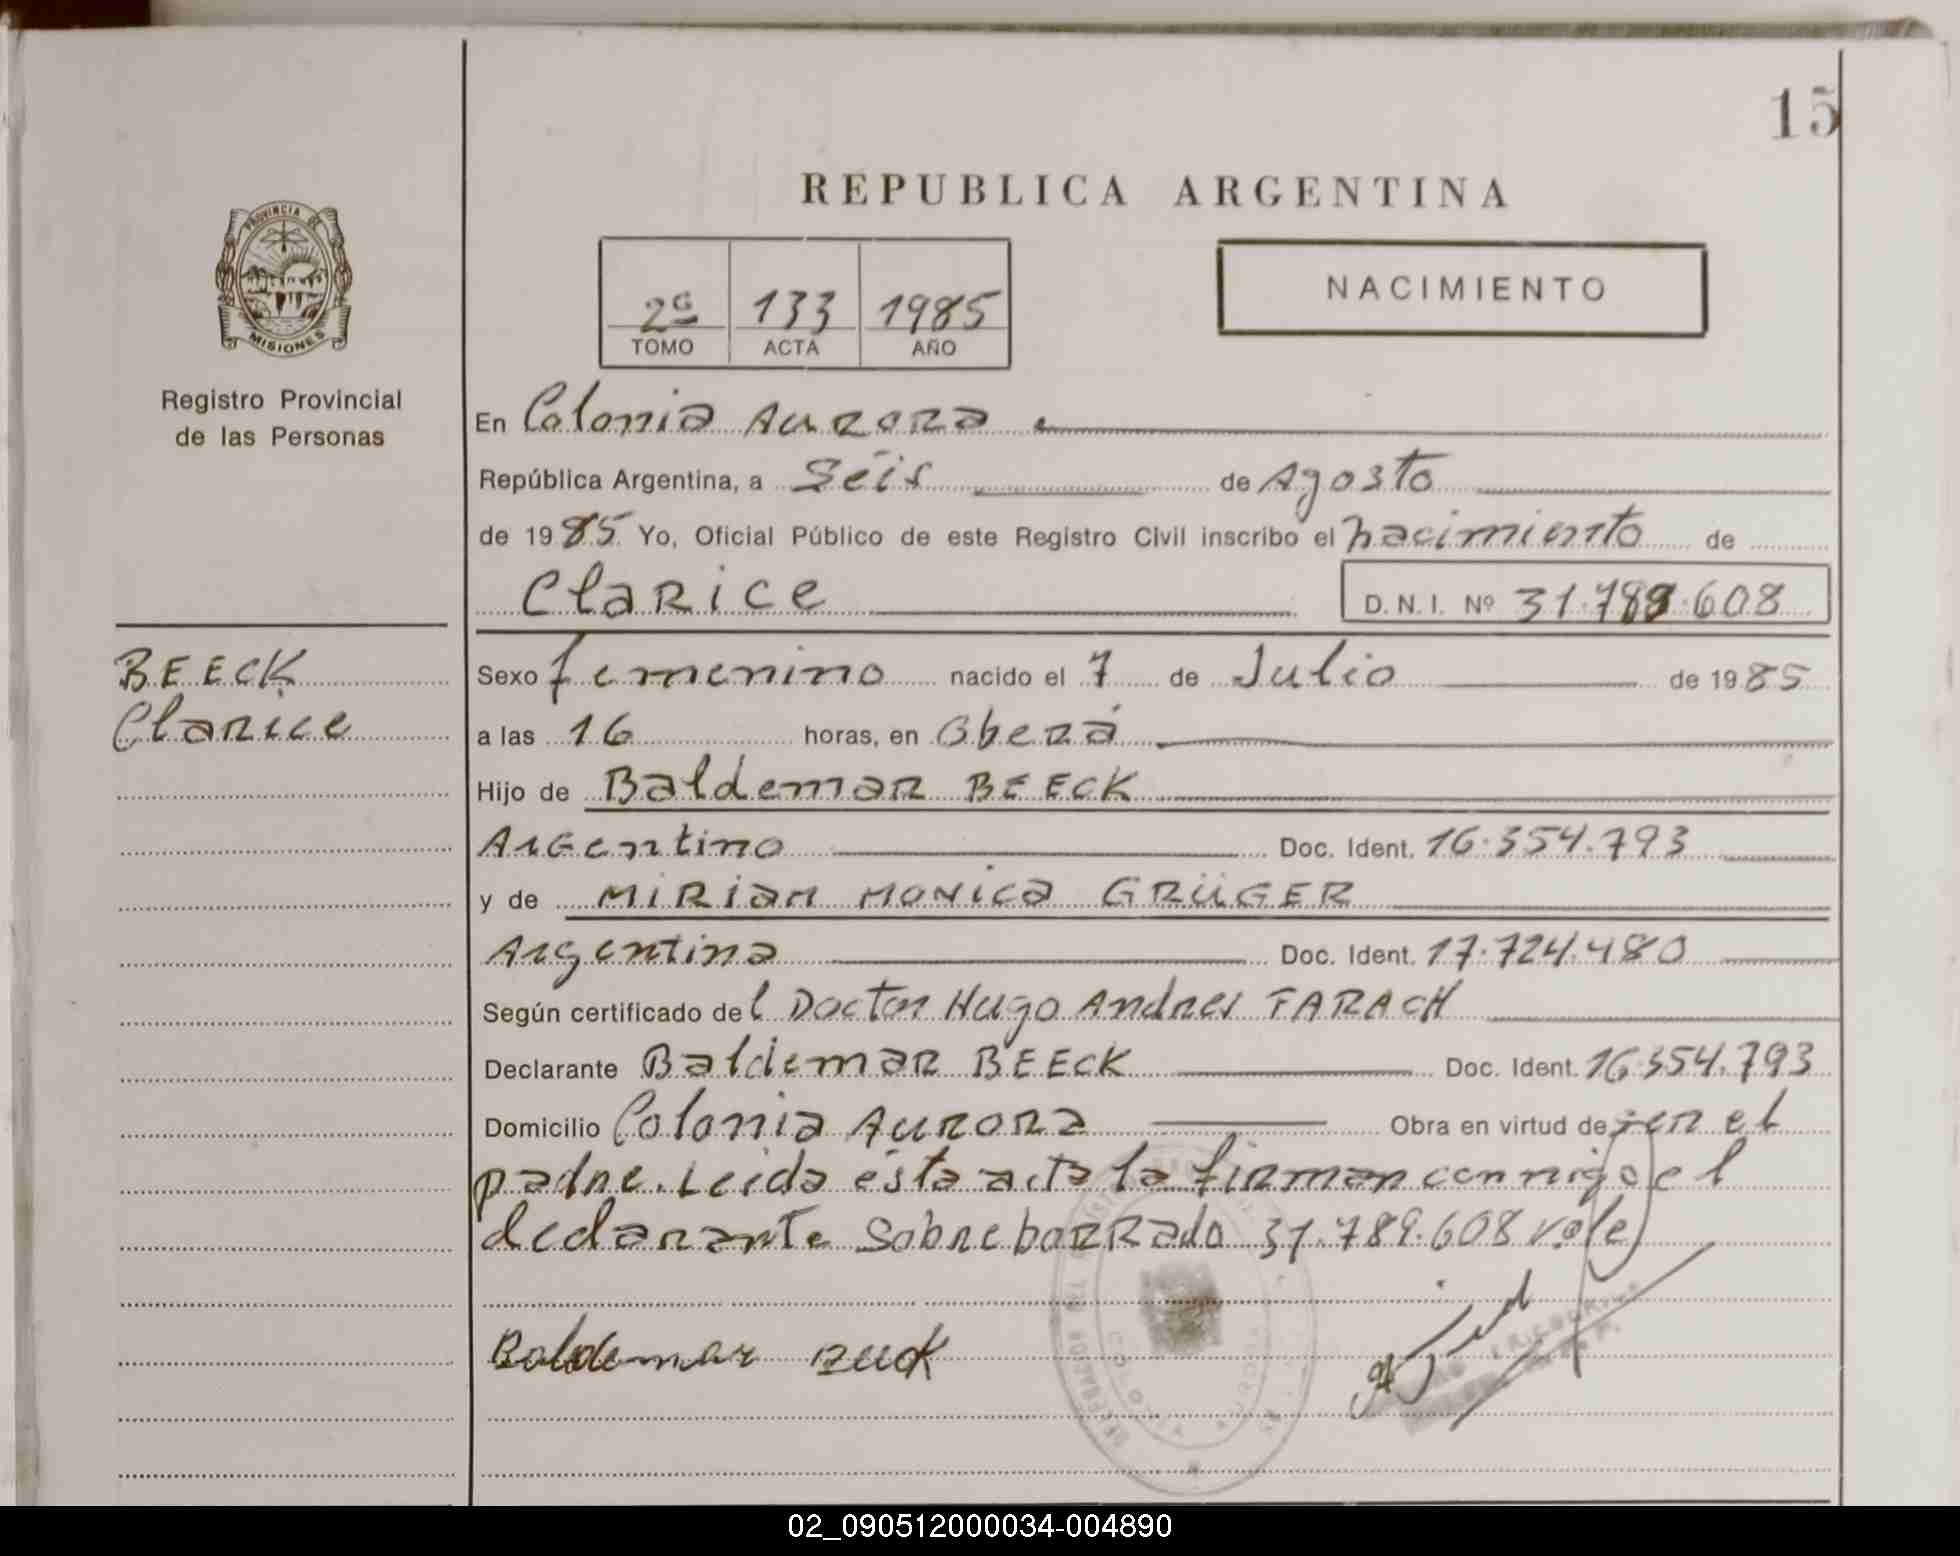 15
REPUBLICA ARGENTINA
PROVINCIA DE
MISIONES
Registro Provincial
de las Personas
2º 133 1985
TOMO ACTA AÑO
NACIMIENTO
En Colonia Aurora
República Argentina, a Séis de Agosto
de 1985 Yo, Oficial Público de este Registro Civil inscribo el nacimiento de
Clarice D.N.I. Nº 31.789.608
BEECK
Clarice
Sexo femenino nacido el 7 de Julio de 1985
a las 16 horas, en Oberá
Hijo de Baldemar BEECK
Argentino Doc. Ident. 16.354.793
y de MIRIAM MONICA GRÜGER
Argentina Doc. Ident. 17.724.480
Según certificado del Doctor Hugo Andres FARACH
Declarante Baldemar BEECK Doc. Ident. 16.354.793
Domicilio Colonia Aurora Obra en virtud de ser el
padre. Leida ésta acta la firman conmigo el
declarante Sobreborrado 31.789.608 vale
Baldemar Beeck
02_090512000034-004890